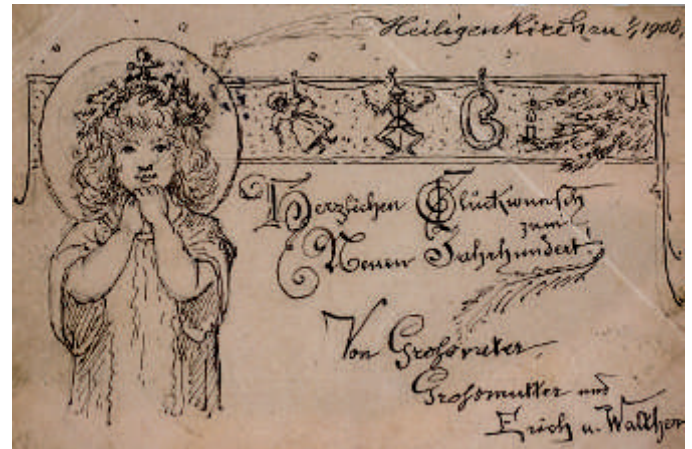 Heiligenkirchen 1/1 1900,
Herzlichen Glückwunsch
zum
Neuen Jahrhundert!
Von Grossvater,
Grossmutter und
Erich u. Walther